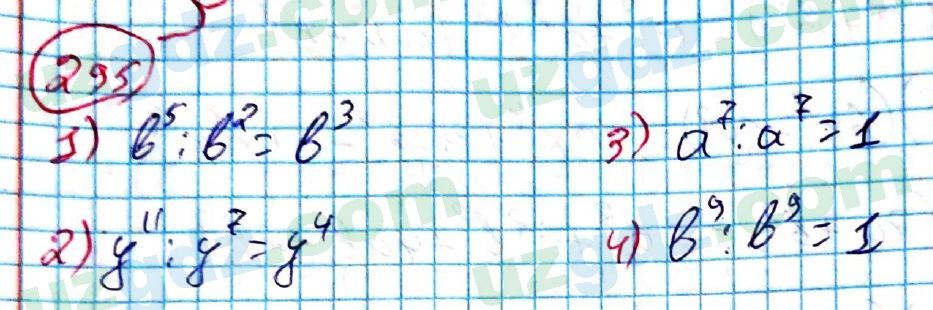 295
1) b⁵ : b² = b³
3) a⁷ : a⁷ = 1
2) y¹¹ : y⁷ = y⁴
4) b⁹ : b⁹ = 1
uzgdz.com